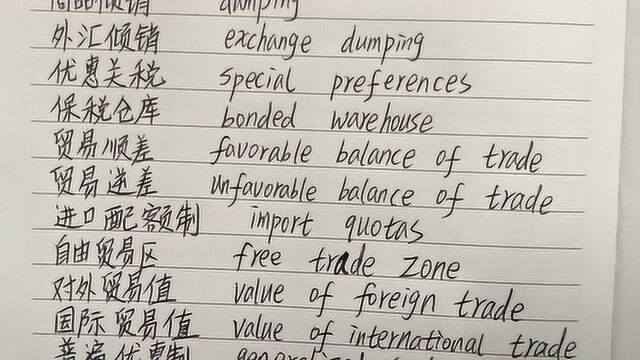 商品倾销 dumping
外汇倾销 exchange dumping
优惠关税 special preferences
保税仓库 bonded warehouse
贸易顺差 favorable balance of trade
贸易逆差 unfavorable balance of trade
进口配额制 import quotas
自由贸易区 free trade zone
对外贸易值 value of foreign trade
国际贸易值 value of international trade
普遍优惠制 generalized